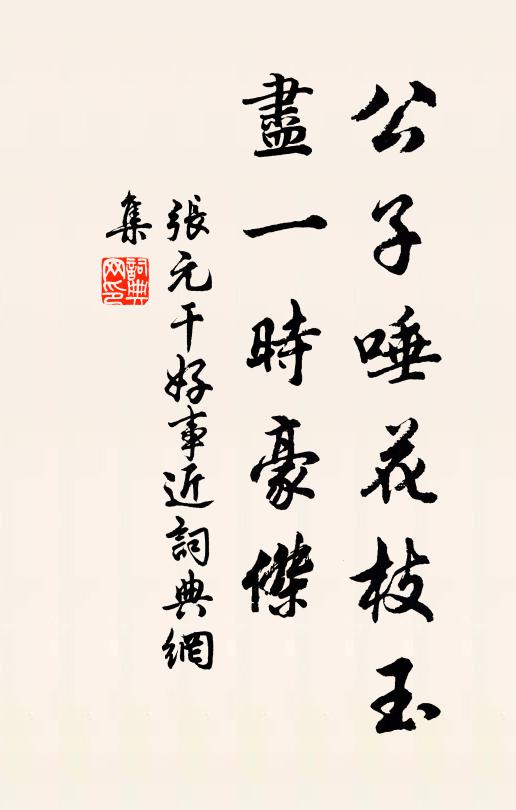 公子唾花枝玉
盡一時豪傑
張元干好事近詞典網
集
詞典網印